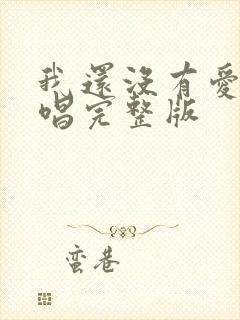 我還沒有愛
唱完整版
蛮巷